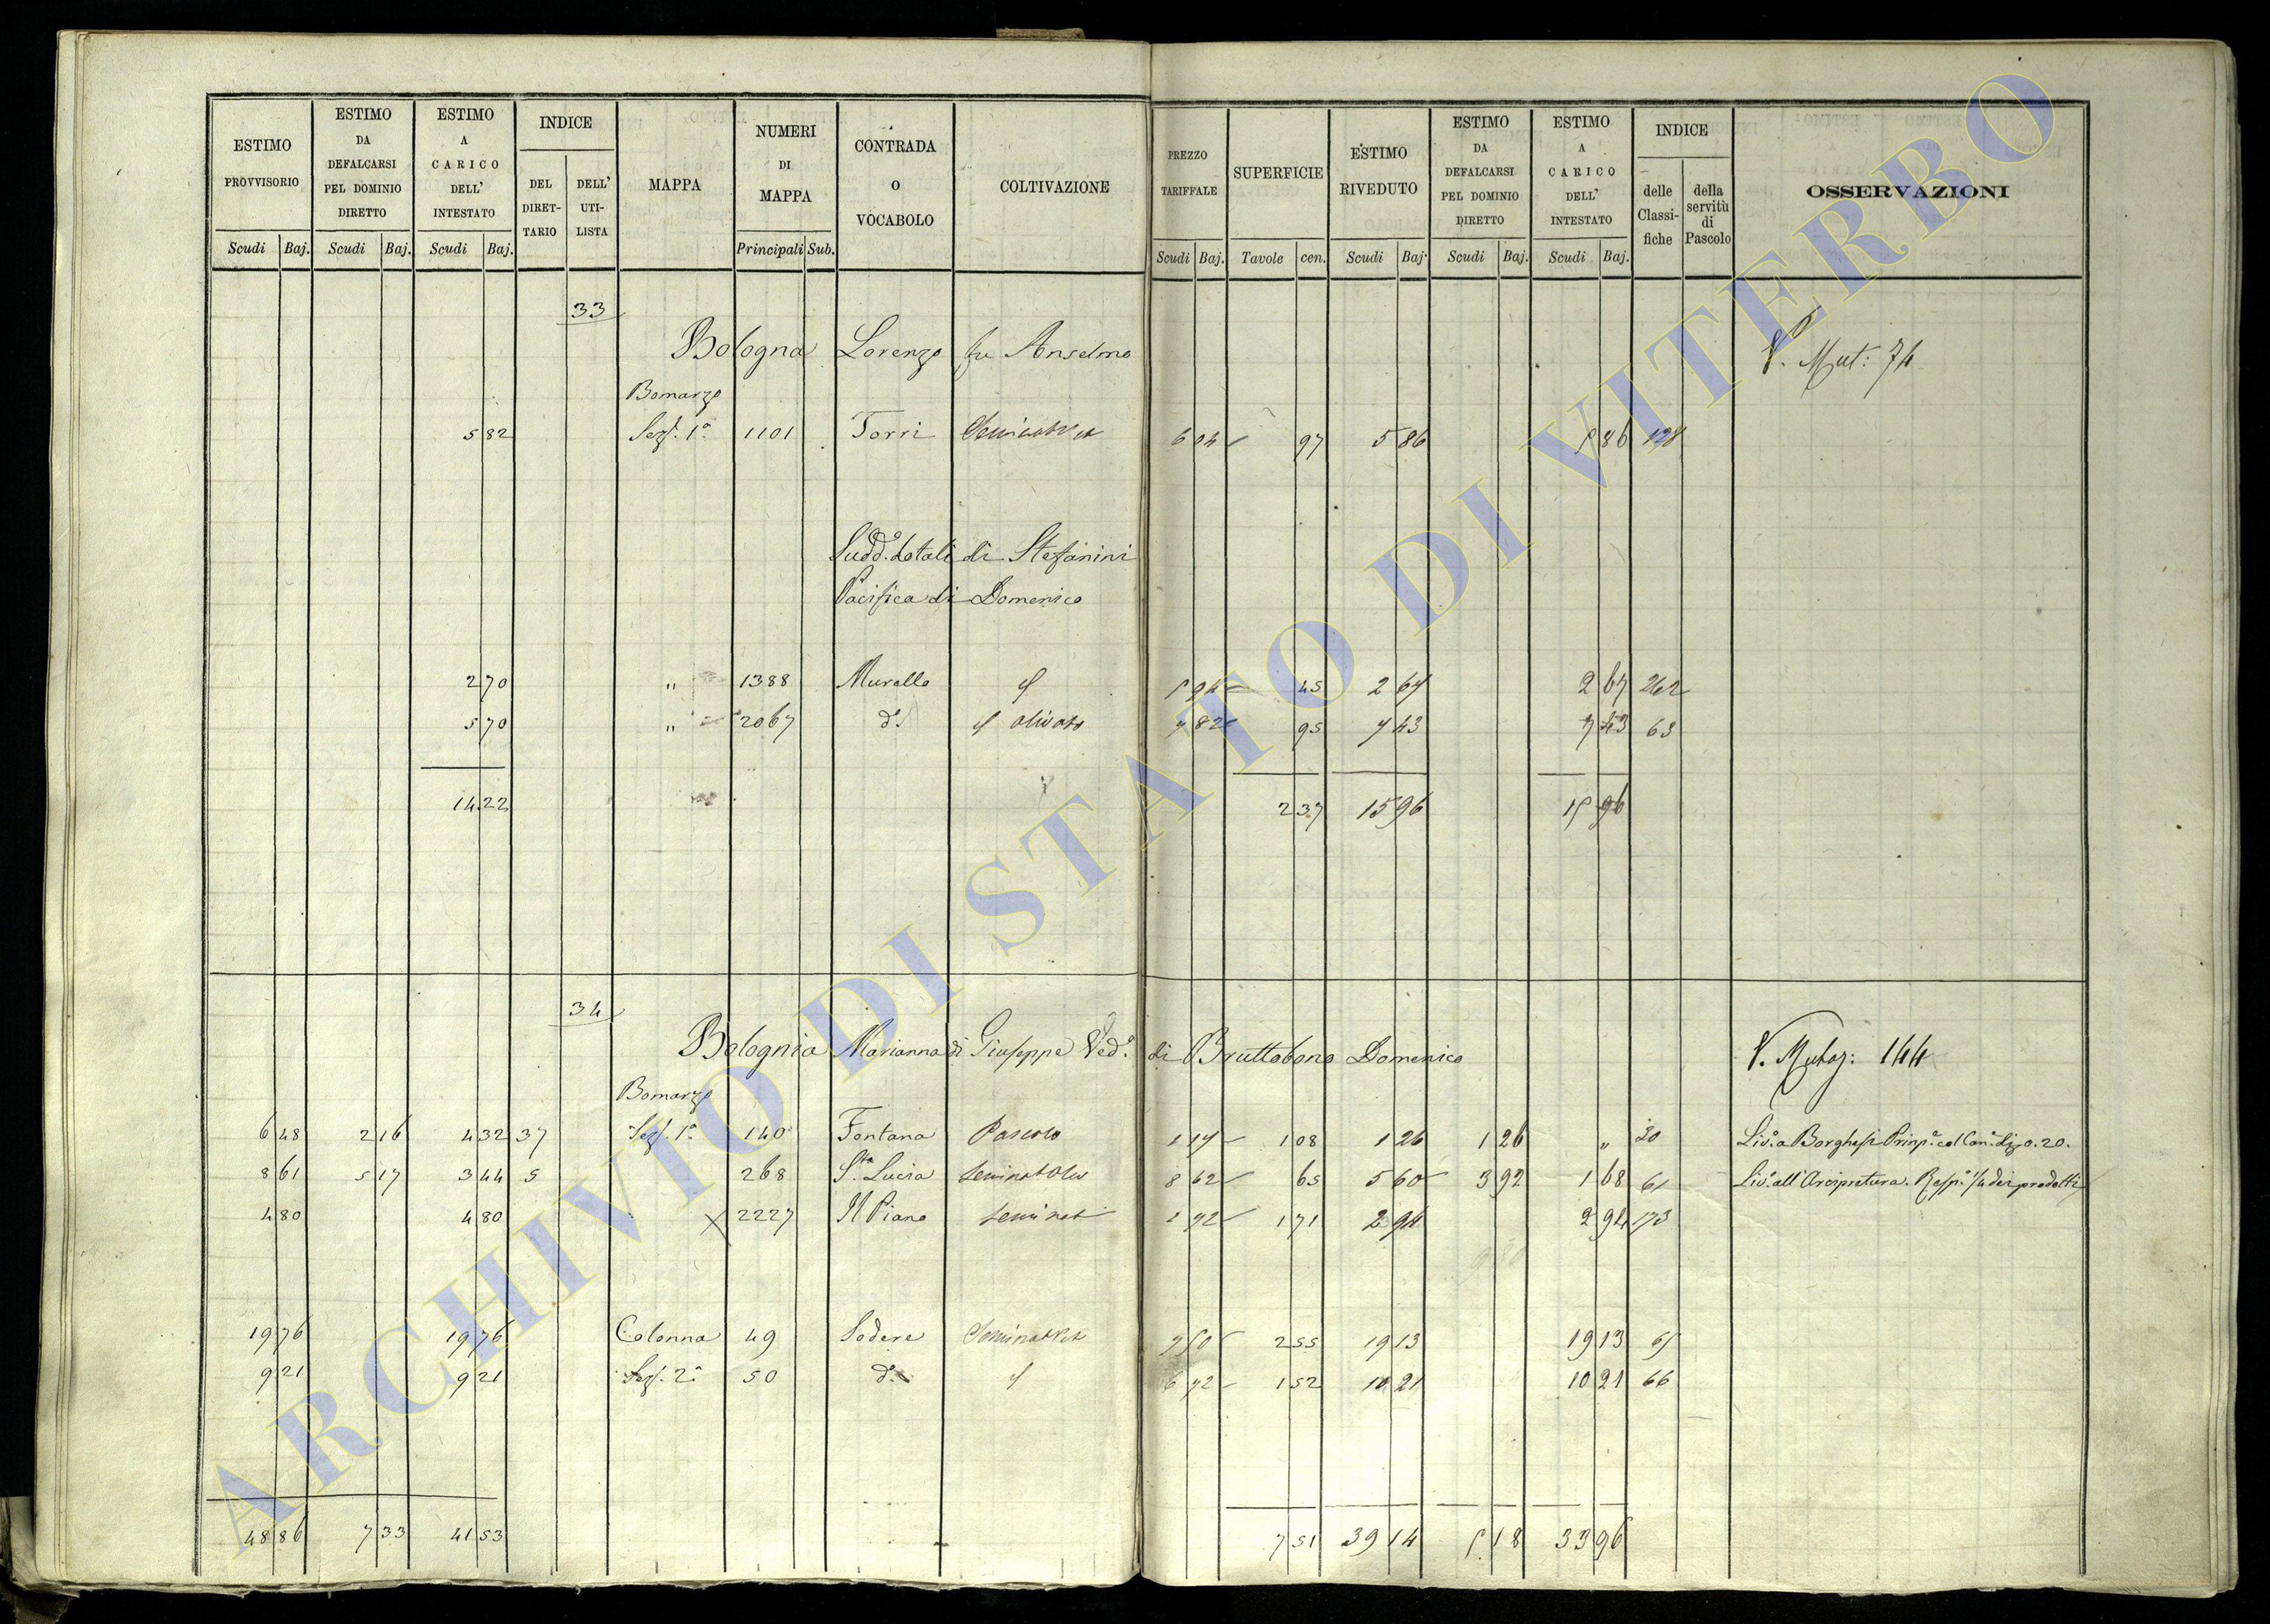 ESTIMO PROVVISORIO | ESTIMO DA DEFALCARSI PEL DOMINIO DIRETTO | ESTIMO A CARICO DELL' INTESTATO | INDICE DEL DIRETTARIO | DELL' UTILISTA | MAPPA | NUMERI DI MAPPA | CONTRADA O VOCABOLO | COLTIVAZIONE | PREZZO TARIFFALE | SUPERFICIE | ESTIMO RIVEDUTO | ESTIMO DA DEFALCARSI PEL DOMINIO DIRETTO | ESTIMO A CARICO DELL' INTESTATO | INDICE delle Classifiche | della servitù di Pascolo | OSSERVAZIONI
Scudi Baj. Scudi Baj. Scudi Baj. Principali Sub. Scudi Baj. Tavole cen. Scudi Baj. Scudi Baj. Scudi Baj.
33
Bologna Lorenzo fu Anselmo V. Mut: 74
Bomarzo
5 82 Sez. 1a 1101 Torri 6 04 97 5 86 5 86 128
Sudd.o dotali di Stefanini
Pacifica di Domenico
2 70 " 1388 Murella 5 94 45 2 67 2 67 262
5 70 " 2067 d.o olivato 7 82 95 7 43 7 43 63
14 22 2 37 15 96 15 96
34
Bolognia Marianna di Giuseppe Ved.a di Bruttobono Domenico V. Mutaz: 144
Bomarzo
6 48 2 16 4 32 37 Sez. 1a 140 Fontana Pascolo 1 17 1 08 1 26 1 26 " 20 Liv.o a Borghesi Prinp.e col Can.e di 0.20.
8 61 5 17 3 44 5 268 S.ta Lucia 8 62 65 5 60 3 92 1 68 61 Liv.o all'Arcipretura. Risp.e 1/4 dei prodotti
4 80 4 80 X 2227 Il Piano seminat 1 72 1 71 2 94 2 94 173
19 76 19 76 Colonna 49 Sodere 7 50 2 55 19 13 19 13 65
9 21 9 21 Sez. 2a 50 d.o 6 72 1 52 10 21 10 21 66
48 86 7 33 41 53 7 51 39 14 5 18 33 96
ARCHIVIO DI STATO DI VITERBO